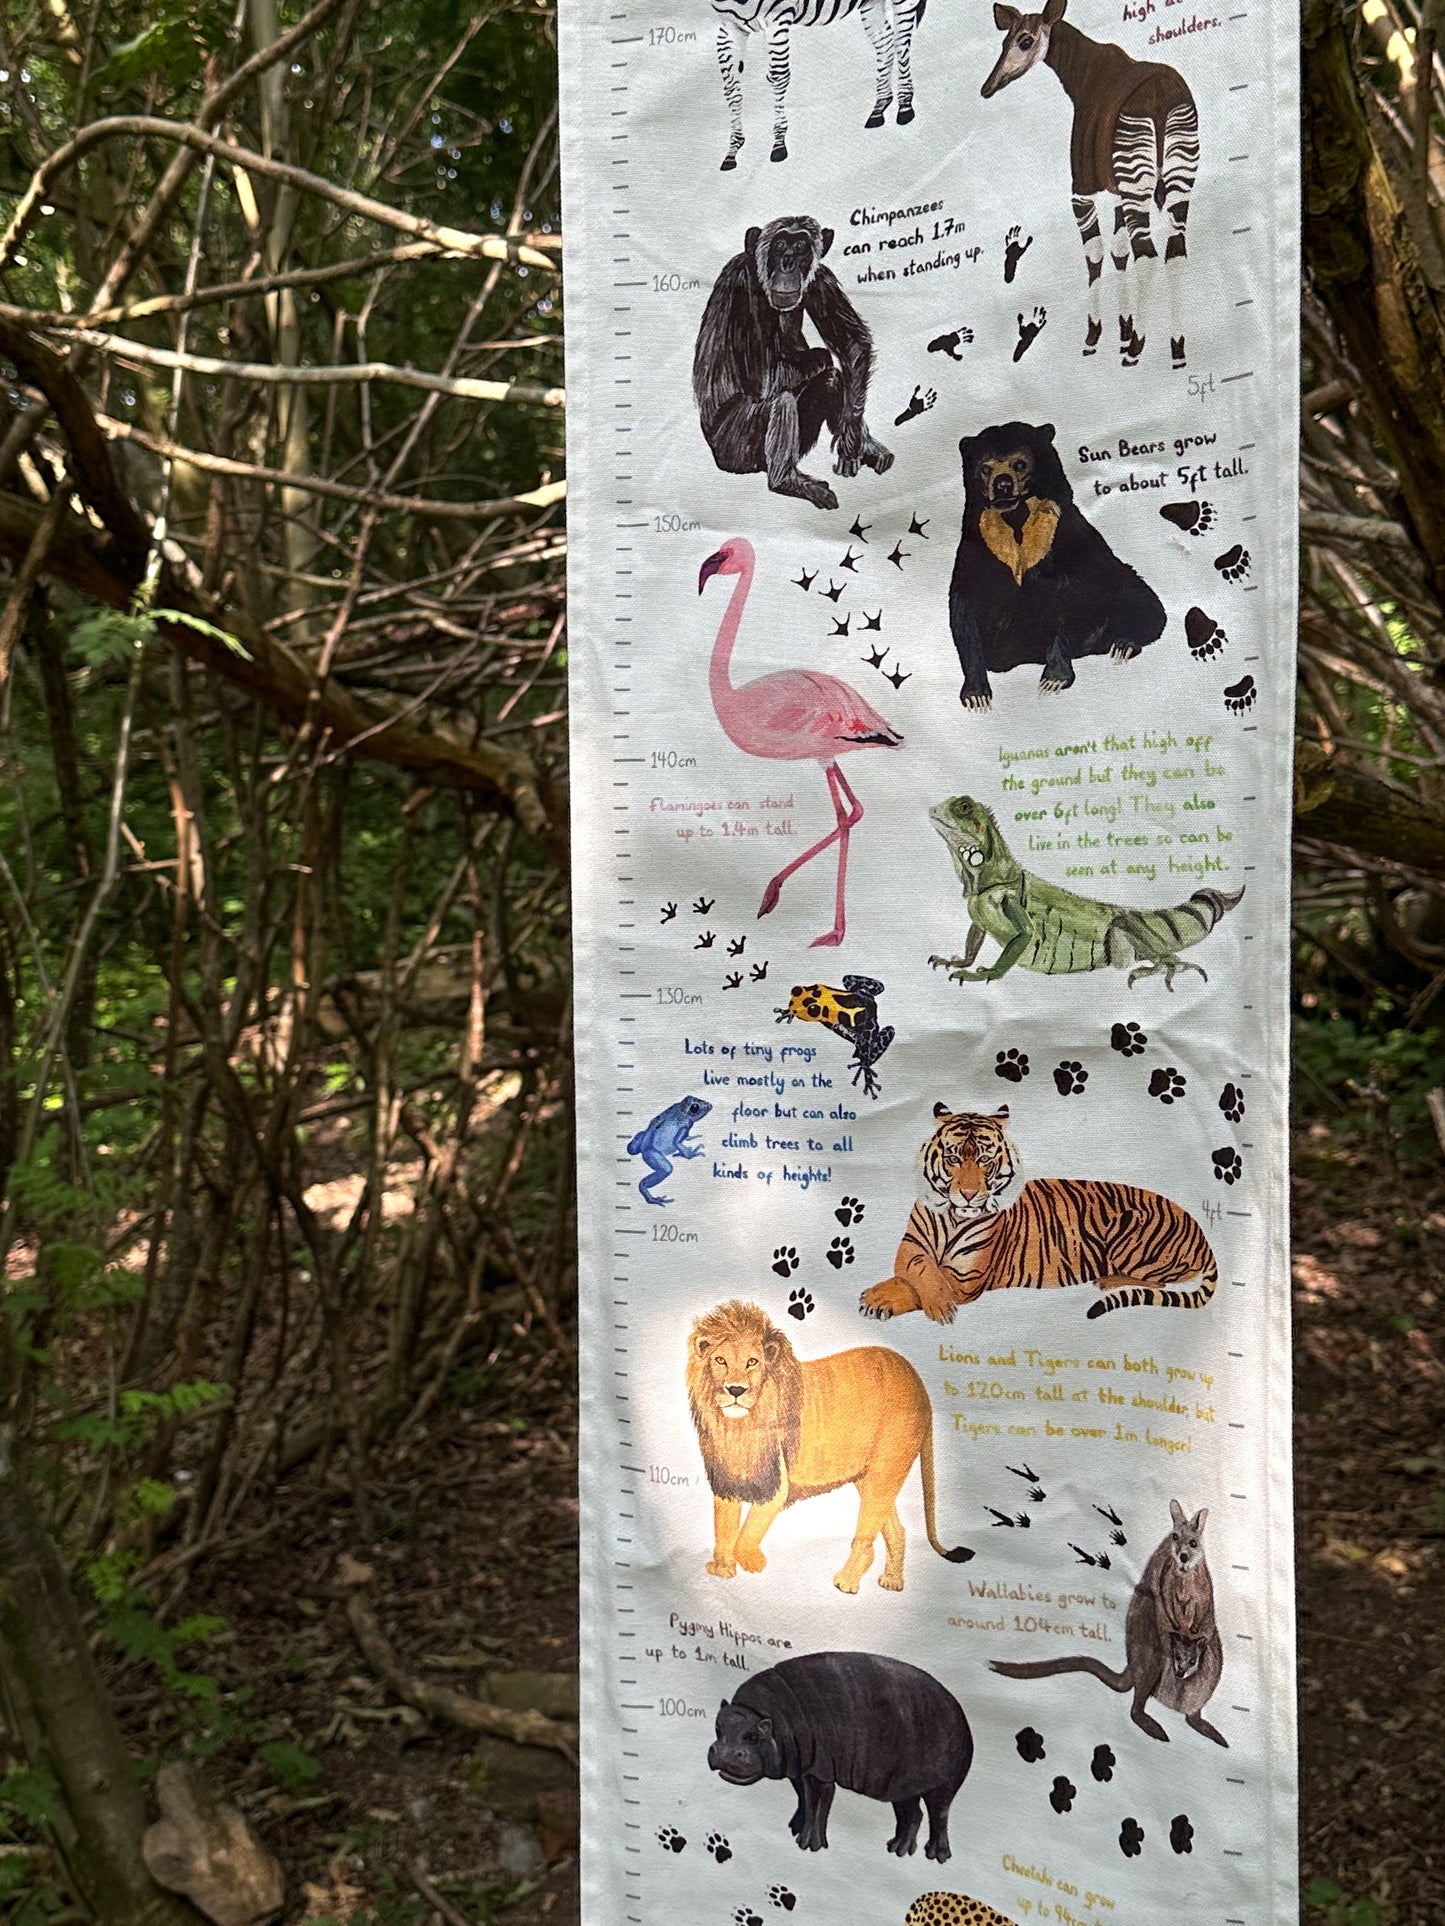 high at
shoulders.
170cm
Chimpanzees
can reach 1.7m
when standing up.
160cm
5ft
Sun Bears grow
to about 5ft tall.
150cm
Iguanas aren't that high off
the ground but they can be
over 6ft long! They also
live in the trees so can be
seen at any height.
140cm
Flamingoes can stand
up to 1.4m tall.
130cm
Lots of tiny frogs
live mostly on the
floor but can also
climb trees to all
kinds of heights!
4ft
120cm
Lions and Tigers can both grow up
to 120cm tall at the shoulder, but
Tigers can be over 1m longer!
110cm
Wallabies grow to
around 104cm tall.
Pygmy Hippos are
up to 1m tall.
100cm
Cheetahs can grow
up to 94cm